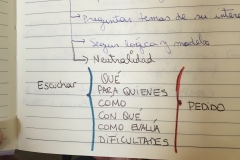 Preguntas temas de su interé
Seguir lógica y modelo
Neutralidad
Escuchar
¿QUÉ
PARA QUIENES
COMO
CON QUÉ
COMO EVALÚA
DIFICULTADES
PEDIDO